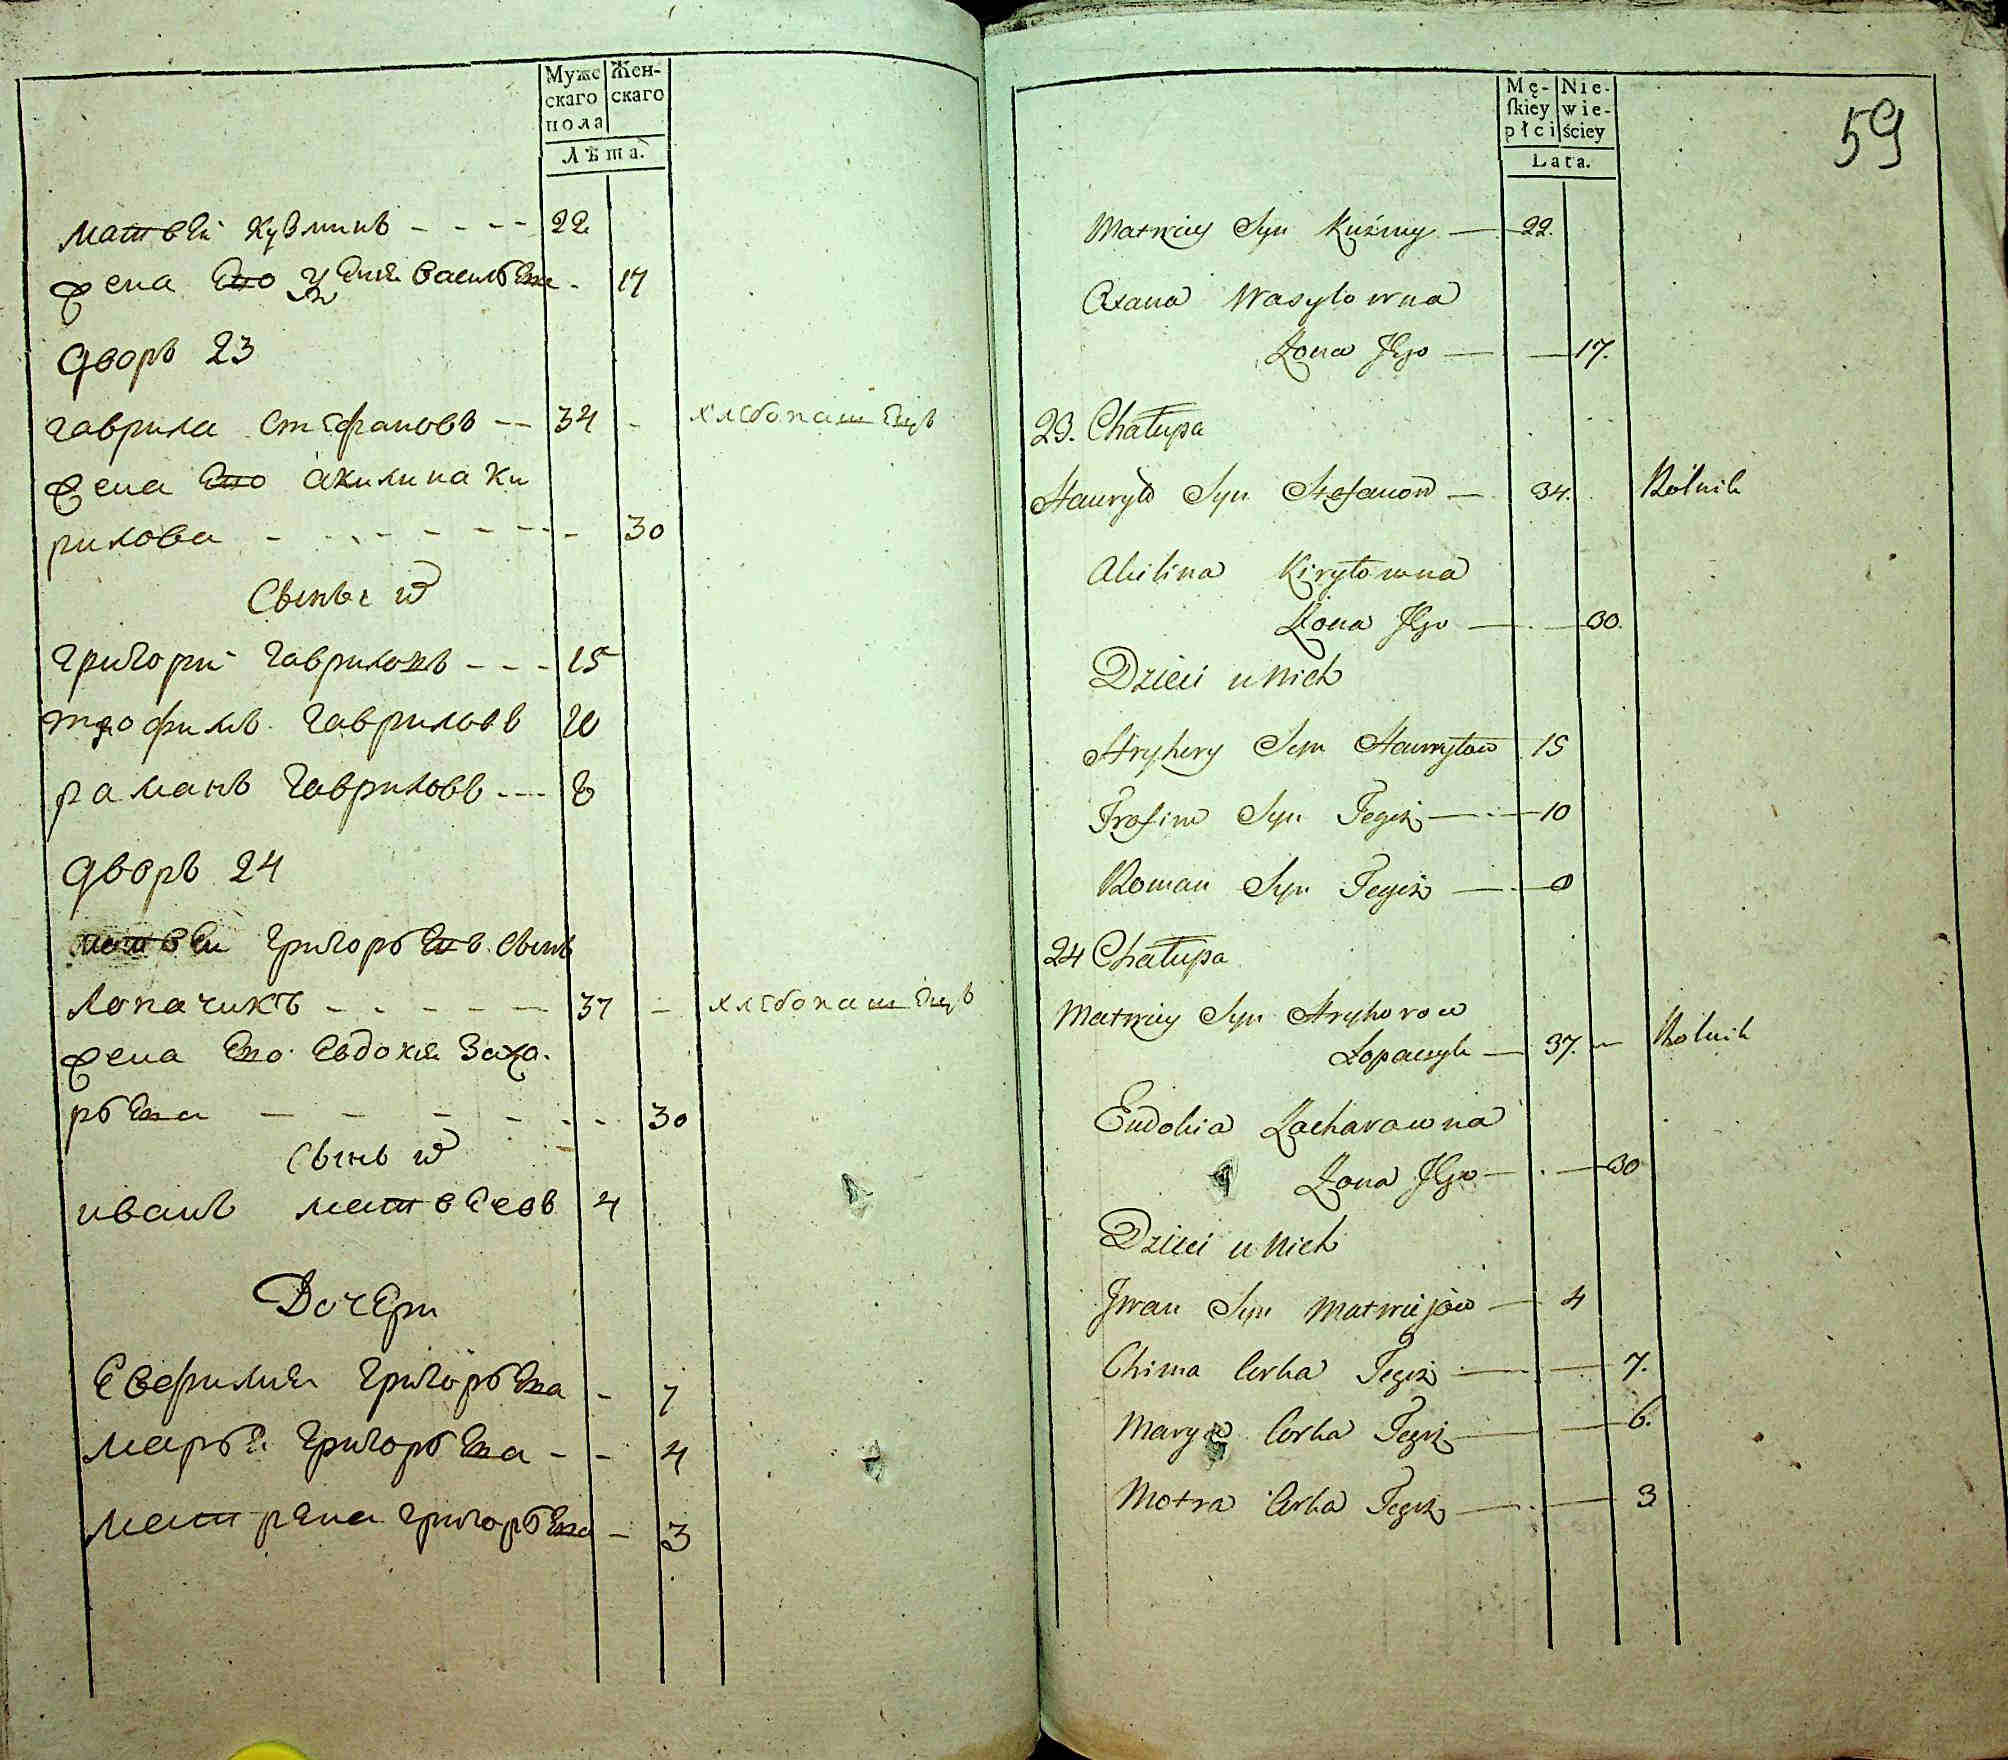 Муже
скаго
пола
Жен-
скаго
Лѣта.
матвей кузминъ - - - - 22
жена его Ксения васильева - 17
дворъ 23
гаврила стефановъ -- 34 - хлебопашецъ
жена его акилина ки
рилова - - - - - - - 30
Сыны и
григори гавриловъ - - - 15
трофимъ гавриловъ 10
раманъ гавриловъ --- 8
дворъ 24
матвеи григорьевъ сынъ
лопачикъ - - - - - 37 - хлебопашецъ
жена его евдокия Заха-
рьева - - - - - - 30
Сынъ и
иванъ матвеевъ 4
Дочери
Евфимия григорьева - 7
марья григорьева - - 4
матрена григорьева - 3
59
Mę-
ſkiey
płci
Nie-
wie-
ściey
Lata.
Matwiey Syn Kuźmy — 22.
Oxana Wasylowna
Żona Jego — — 17.
23. Chałupa
Hauryło Syn Stefanow — 34. Rolnik
Akilina Kiryłowna
Żona Jego — — 30.
Dzieci u Nich
Hryhory Syn Hauryłow 15
Trofim Syn Tegoż — — 10
Roman Syn Tegoż — — 8
24 Chałupa
Matwiey Syn Hryhorow
Łopaczyk — 37. — Rolnik
Eudokia Zacharowna
Żona Jego — — 30
Dzieci u Nich
Jwan Syn Matwiejow — 4
Chima Corka Tegoż — — 7.
Marya Corka Tegoż — — 6.
Motra Corka Tegoż — — 3